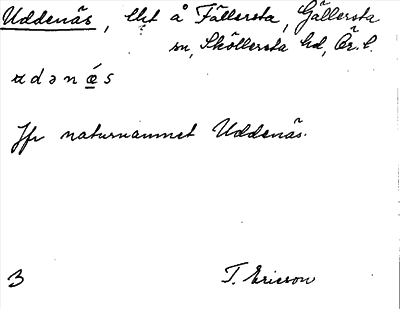 Uddenäs, lht å Fällersta, Gällersta
sn, Sköllersta hd, Ör. l.
ɑdənǽs
Jfr naturnamnet Uddenäs.
3 T. Ericson